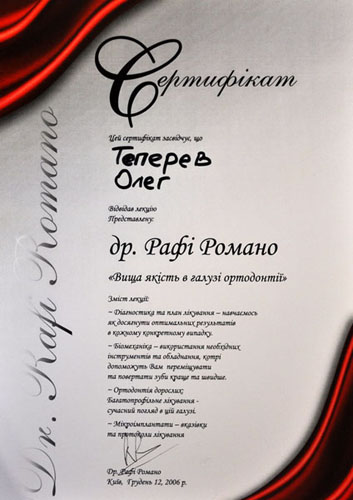 Сертифікат
Цей сертифікат засвідчує, що
Теперев
Олег
Відвідав лекцію
Представлену:
др. Рафі Романо
«Вища якість в галузі ортодонтії»
Зміст лекції:
– Діагностика та план лікування – навчаємось
як досягнути оптимальних результатів
в кожному конкретному випадку.
– Біомеханіка – використання необхідних
інструментів та обладнання, котрі
допоможуть Вам переміщувати
та повертати зуби краще та швидше.
– Ортодонтія дорослих;
Багатопрофільне лікування -
сучасний погляд в цій галузі.
– Мікроімплантати – вказівки
та протоколи лікування
Др. Рафі Романо
Київ, Грудень 12, 2006 р.
Dr. Rafi Romano